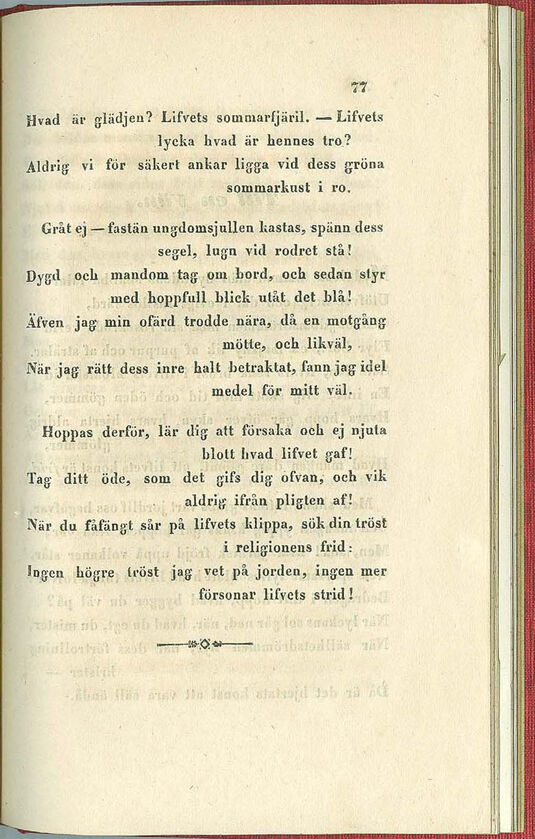 77
Hvad är glädjen? Lifvets sommarfjäril. — Lifvets
lycka hvad är hennes tro?
Aldrig vi för säkert ankar ligga vid dess gröna
sommarkust i ro.
Gråt ej — fastän ungdomsjullen kastas, spänn dess
segel, lugn vid rodret stå!
Dygd och mandom tag om bord, och sedan styr
med hoppfull blick utåt det blå!
Äfven jag min ofärd trodde nära, då en motgång
mötte, och likväl,
När jag rätt dess inre halt betraktat, fann jag idel
medel för mitt väl.
Hoppas derför, lär dig att försaka och ej njuta
blott hvad lifvet gaf!
Tag ditt öde, som det gifs dig ofvan, och vik
aldrig ifrån pligten af!
När du fåfängt sår på lifvets klippa, sök din tröst
i religionens frid:
Ingen högre tröst jag vet på jorden, ingen mer
försonar lifvets strid!